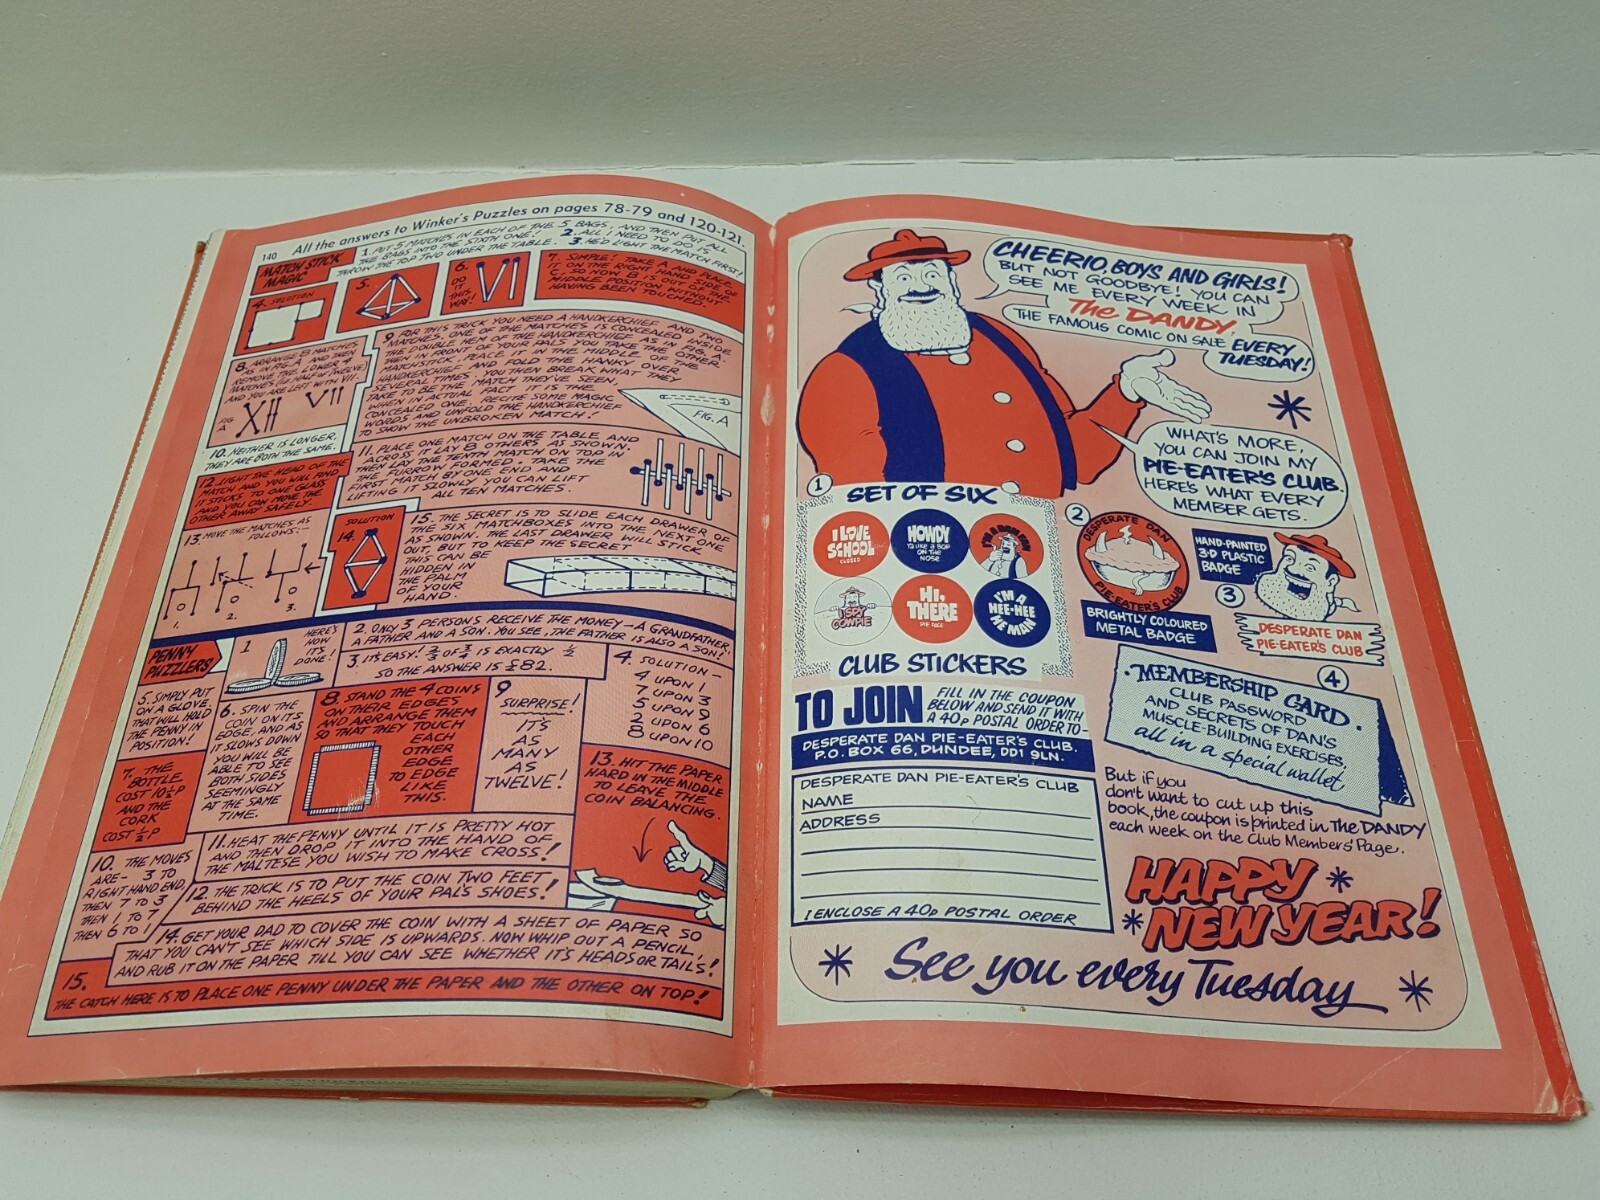 140 All the answers to Winker's Puzzles on pages 78-79 and 120-121.
MATCH STICK
MAGIC
1. PUT 5 MATCHES IN EACH OF THE 5 BAGS, AND THEN PUT ALL
THE BAGS INTO THE SIXTH ONE! 2. ALL I NEED TO DO IS
THROW THE TOP TWO UNDER THE TABLE. 3. HE'D LIGHT THE MATCH FIRST!
4. SOLUTION
5.
6.
DO
IT
THIS
WAY!
7. SIMPLE! TAKE A AND PLACE
IT ON THE RIGHT HAND SIDE OF
C, SO NOW B IS OUT OF THE
MIDDLE POSITION WITHOUT
HAVING BEEN TOUCHED.
8. ARRANGE 8 MATCHES
AS IN FIG. A AND THEN
REMOVE THE LOWER 4
MATCHES (i.e. HALF OF TWELVE)
AND YOU ARE LEFT WITH VII.
FIG.
A
9. FOR THIS TRICK YOU NEED A HANDKERCHIEF AND TWO
MATCHES. ONE OF THE MATCHES IS CONCEALED INSIDE
THE DOUBLE HEM OF THE HANDKERCHIEF AS IN FIG. A.
THEN IN FRONT OF YOUR PALS YOU TAKE THE OTHER
MATCHSTICK, PLACE IT IN THE MIDDLE OF THE
HANDKERCHIEF AND FOLD THE HANKY OVER
SEVERAL TIMES. YOU THEN BREAK WHAT THEY
TAKE TO BE THE MATCH THEY'VE SEEN,
WHEN IN ACTUAL FACT IT IS THE
CONCEALED ONE. RECITE SOME MAGIC
WORDS AND UNFOLD THE HANDKERCHIEF
TO SHOW THE UNBROKEN MATCH!
FIG. A
10. NEITHER IS LONGER.
THEY ARE BOTH THE SAME.
11. PLACE ONE MATCH ON THE TABLE AND
ACROSS IT LAY 8 OTHERS AS SHOWN.
THEN LAY THE TENTH MATCH ON TOP IN
THE FURROW FORMED. TAKE THE
FIRST MATCH BY ONE END AND
LIFTING IT SLOWLY YOU CAN LIFT
ALL TEN MATCHES.
12. LIGHT THE HEAD OF THE
MATCH AND YOU WILL FIND
IT STICKS TO ONE GLASS
AND YOU CAN MOVE THE
OTHER AWAY SAFELY.
13. MOVE THE MATCHES AS
FOLLOWS:—
1.
2.
3.
SOLUTION
14.
15. THE SECRET IS TO SLIDE EACH DRAWER OF
THE SIX MATCHBOXES INTO THE NEXT ONE
AS SHOWN. THE LAST DRAWER WILL STICK
OUT, BUT TO KEEP THE SECRET
THIS CAN BE
HIDDEN IN
THE PALM
OF YOUR
HAND.
PENNY
PUZZLERS
1
HERE'S
HOW
IT'S
DONE!
2. ONLY 3 PERSONS RECEIVE THE MONEY — A GRANDFATHER,
A FATHER AND A SON. YOU SEE, THE FATHER IS ALSO A SON!
3. IT'S EASY! ⅔ OF ¾ IS EXACTLY ½
SO THE ANSWER IS £82.
4. SOLUTION —
4 UPON 1
7 UPON 3
5 UPON 9
2 UPON 6
8 UPON 10
5. SIMPLY PUT
ON A GLOVE.
THAT WILL HOLD
THE PENNY IN
POSITION!
6. SPIN THE
COIN ON ITS
EDGE, AND AS
IT SLOWS DOWN
YOU WILL BE
ABLE TO SEE
BOTH SIDES
SEEMINGLY
AT THE SAME
TIME.
7. THE
BOTTLE
COST 10½P
AND THE
CORK
COST ½P
8. STAND THE 4 COINS
ON THEIR EDGES
AND ARRANGE THEM
SO THAT THEY TOUCH
EACH
OTHER
EDGE
TO EDGE
LIKE
THIS.
9
SURPRISE!
IT'S
AS
MANY
AS
TWELVE!
10. THE MOVES
ARE— 3 TO
RIGHT HAND END,
THEN 7 TO 3
THEN 1 TO 7
THEN 6 TO 1
11. HEAT THE PENNY UNTIL IT IS PRETTY HOT
AND THEN DROP IT INTO THE HAND OF
THE MALTESE YOU WISH TO MAKE CROSS!
12. THE TRICK IS TO PUT THE COIN TWO FEET
BEHIND THE HEELS OF YOUR PAL'S SHOES!
13. HIT THE PAPER
HARD IN THE MIDDLE
TO LEAVE THE
COIN BALANCING.
14. GET YOUR DAD TO COVER THE COIN WITH A SHEET OF PAPER SO
THAT YOU CAN'T SEE WHICH SIDE IS UPWARDS. NOW WHIP OUT A PENCIL,
AND RUB IT ON THE PAPER TILL YOU CAN SEE WHETHER IT'S HEADS OR TAILS!
15.
THE CATCH HERE IS TO PLACE ONE PENNY UNDER THE PAPER AND THE OTHER ON TOP!
CHEERIO, BOYS AND GIRLS!
BUT NOT GOODBYE! YOU CAN
SEE ME EVERY WEEK IN
The DANDY,
THE FAMOUS COMIC ON SALE EVERY
TUESDAY!
WHAT'S MORE,
YOU CAN JOIN MY
PIE-EATER'S CLUB.
HERE'S WHAT EVERY
MEMBER GETS.
1
SET OF SIX
I LOVE
SCHOOL
CLOSED
HOWDY
YA LIKE A BOP
ON THE
NOSE
I'M A DAN FAN
I SPY
COWPIE
HI,
THERE
PIE FACE
I'M A
HEE-HEE
HE MAN
CLUB STICKERS
2
DESPERATE DAN
PIE-EATER'S CLUB
BRIGHTLY COLOURED
METAL BADGE
HAND-PAINTED
3-D PLASTIC
BADGE
3
DESPERATE DAN
PIE-EATER'S CLUB
4
MEMBERSHIP CARD.
CLUB PASSWORD
AND SECRETS OF DAN'S
MUSCLE-BUILDING EXERCISES,
all in a special wallet
TO JOIN
FILL IN THE COUPON
BELOW AND SEND IT WITH
A 40p POSTAL ORDER TO-
DESPERATE DAN PIE-EATER'S CLUB.
P.O. BOX 66, DUNDEE, DD1 9LN.
DESPERATE DAN PIE-EATER'S CLUB
NAME
ADDRESS
I ENCLOSE A 40p POSTAL ORDER
But if you
don't want to cut up this
book, the coupon is printed in The DANDY
each week on the Club Members' Page.
HAPPY
NEW YEAR!
See you every Tuesday